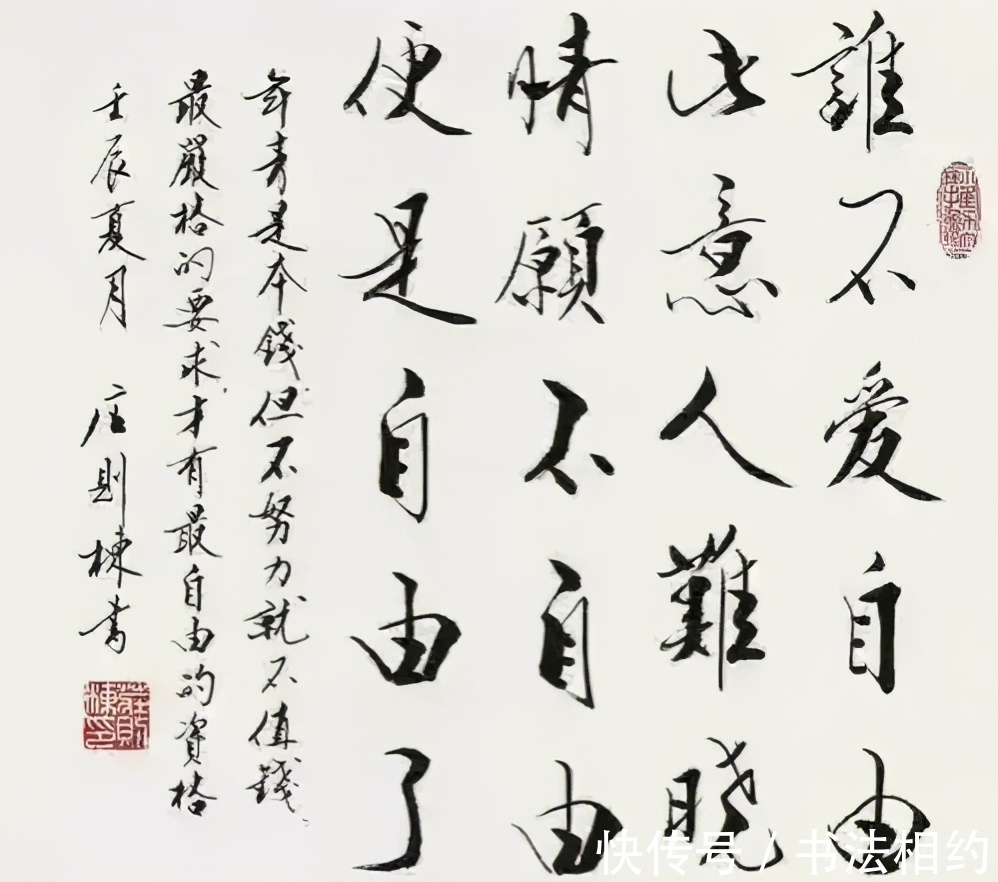 誰不爱自由
此意人難曉
情願不自由
便是自由了
年青是本錢但不努力就不值錢
最嚴格的要求才有最自由的資格
壬辰夏月 庄則棟書
莊則棟印
快传号 / 书法相约